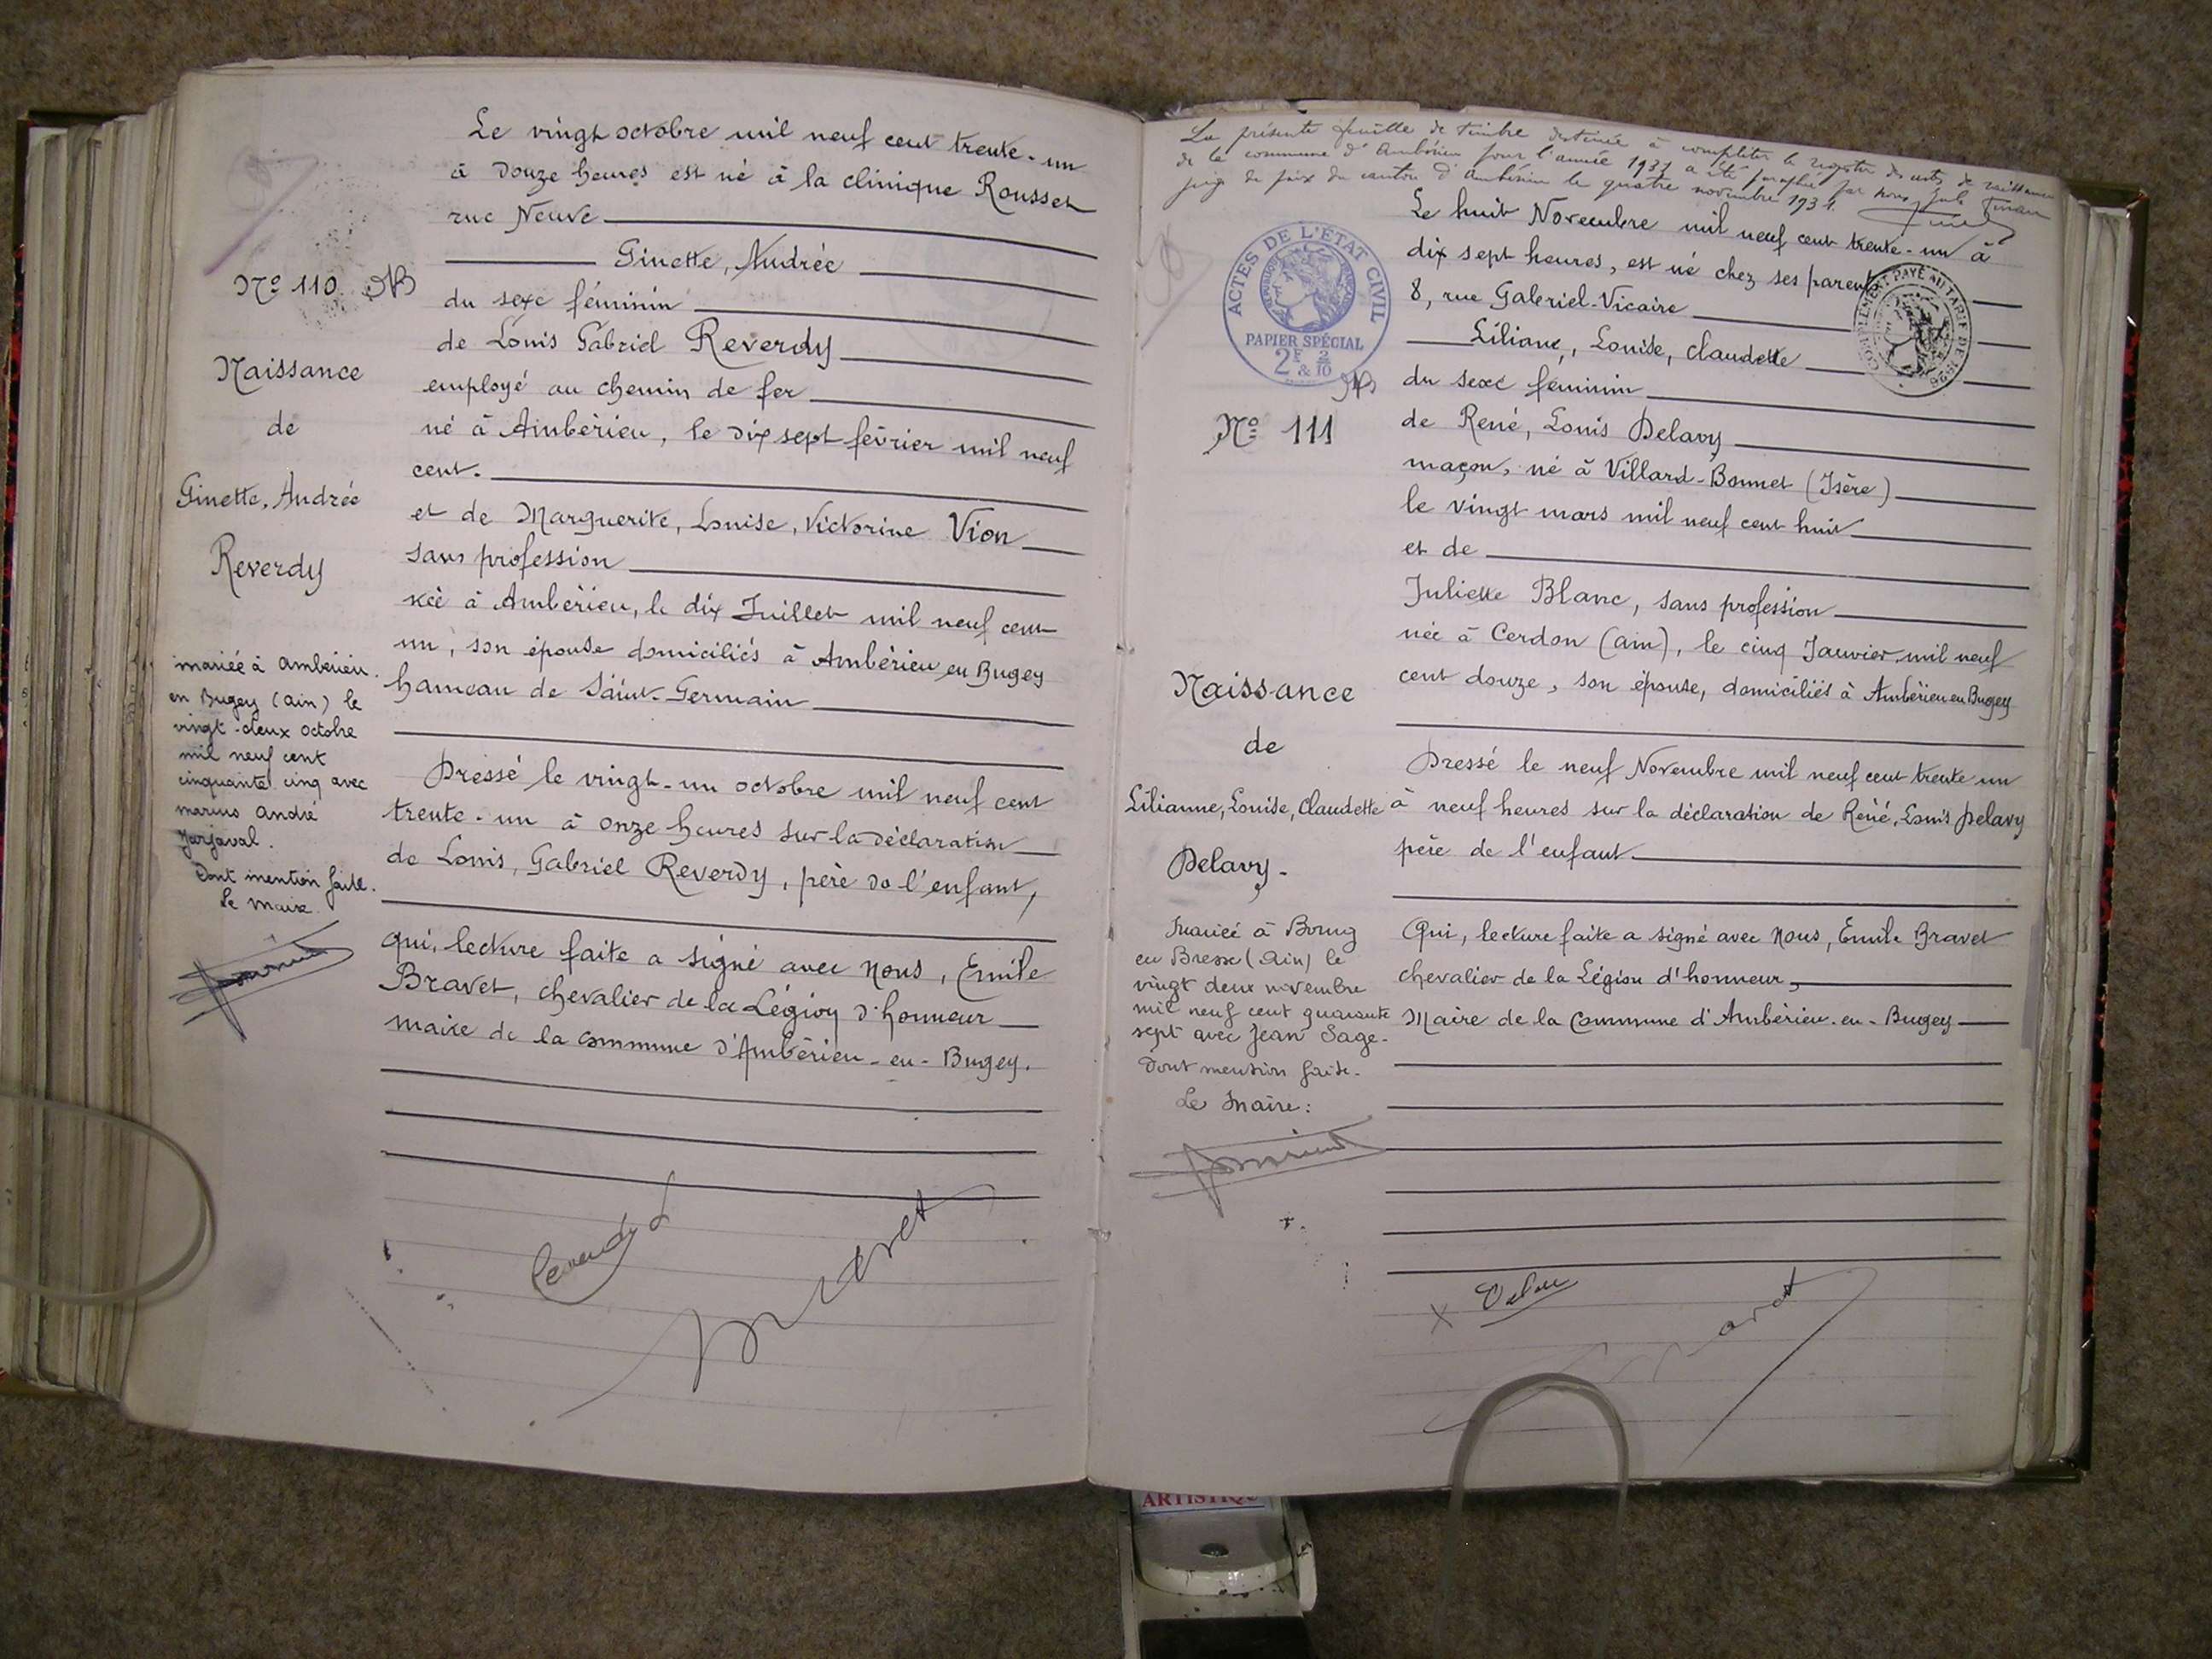 Le vingt octobre mil neuf cent trente-un
à douze heures est né à la clinique Rousset
rue Neuve
Ginette, Andrée
du sexe féminin
de Louis Gabriel Reverdy
employé au chemin de fer
né à Ambérieu, le dix sept février mil neuf
cent.
et de Marguerite, Louise, Victorine Vion
sans profession
née à Ambérieu, le dix Juillet mil neuf cent
un, son épouse domiciliés à Ambérieu en Bugey
hameau de Saint-Germain
Dressé le vingt-un octobre mil neuf cent
trente-un à onze heures sur la déclaration
de Louis, Gabriel Reverdy, père de l'enfant,
qui, lecture faite a signé avec Nous, Emile
Bravet, chevalier de la Légion d'honneur
maire de la commune d'Ambérieu-en-Bugey.
No 110
Naissance
de
Ginette, Andrée
Reverdy
mariée à Ambérieu
en Bugey (ain) le
vingt-deux octobre
mil neuf cent
cinquante cinq avec
marius andré
Jarjaval.
Dont mention faite.
Le maire
Reverdy L
Bravet
La présente feuille de timbre destinée à compléter le registre des actes de naissance
de la commune d'Ambérieu pour l'année 1931 a été paraphée par nous, Jules
juge de paix du canton d'Ambérieu le quatre novembre 1931.
Le huit Novembre mil neuf cent trente-un à
dix sept heures, est né chez ses parents
8, rue Gabriel-Vicaire
Liliane, Louise, Claudette
du sexe féminin
de René, Louis Delavy
maçon, né à Villard-Bonnet (Isère)
le vingt mars mil neuf cent huit
et de
Juliette Blanc, sans profession
née à Cerdon (ain), le cinq Janvier mil neuf
cent douze, son épouse, domiciliés à Ambérieu en Bugey
Dressé le neuf Novembre mil neuf cent trente un
à neuf heures sur la déclaration de René, Louis Delavy
père de l'enfant.
Qui, lecture faite a signé avec Nous, Emile Bravet
chevalier de la Légion d'honneur,
Maire de la Commune d'Ambérieu-en-Bugey
ACTES DE L'ÉTAT CIVIL
RÉPUBLIQUE FRANÇAISE
PAPIER SPÉCIAL
2F & 2/10
COMPLÉMENT PAYÉ AU TARIF DE 1926
No 111
Naissance
de
Lilianne, Louise, Claudette
Delavy.
Mariée à Bourg
en Bresse (Ain) le
vingt deux novembre
mil neuf cent quarante
sept avec Jean Sage.
Dont mention faite.
Le Maire:
ARTISTIQU